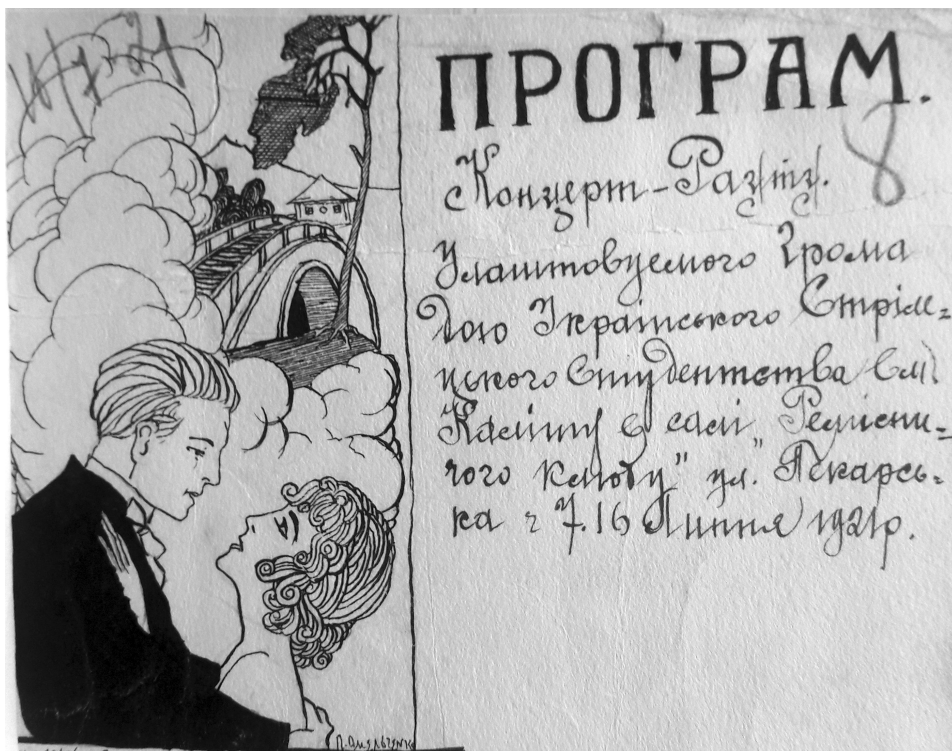 ПРОГРАМ.
8
Концерт-Раути.
Улаштовуемого Грома
дою Українського Стріле=
цького Студентства в м.
Каліщу в салі „Ремісни=
чого клюбу" ул. Пєкарсь=
ка ч 7. 16 Липня 1921р.
П. Омельченко